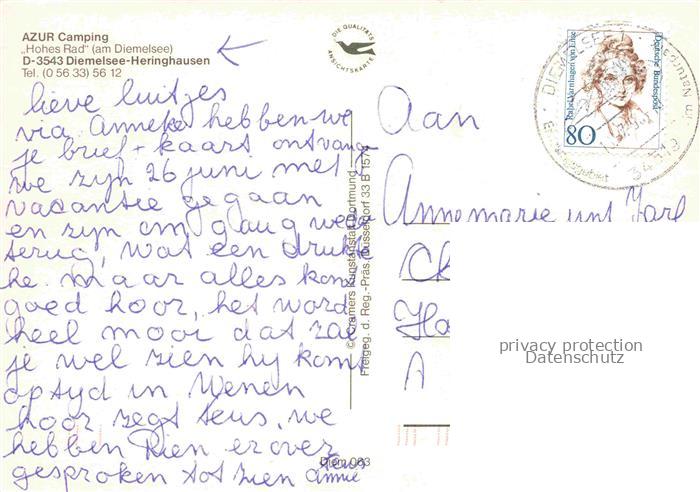 AZUR Camping
„Hohes Rad" (am Diemelsee)
D-3543 Diemelsee-Heringhausen
Tel. (0 56 33) 56 12
DIE QUALITÄTS
ANSICHTSKARTE
lieve luitjes
via Anneke hebben we
je brief + kaart ontvang
we zijn 26 juni met
vacantie gegaan
en zijn
terug, wat een drukte
he. maar alles komt
goed hoor, het word
heel mooi dat zal
je wel zien hij komt
optijd in Wenen
hoor zegt Teus, we
hebben Rien erover
gesproken tot zien Teus
Annie
© Cramers Kunstanstalt Dortmund
Freigeg. d. Reg.-Präs. Düsseldorf 33 B 157
Diem 063
Aan
Annemarie und Karl
Ha
A
80
Rahel Varnhagen von Ense
Deutsche Bundespost
DIEMELSEE 1
3543
privacy protection
Datenschutz